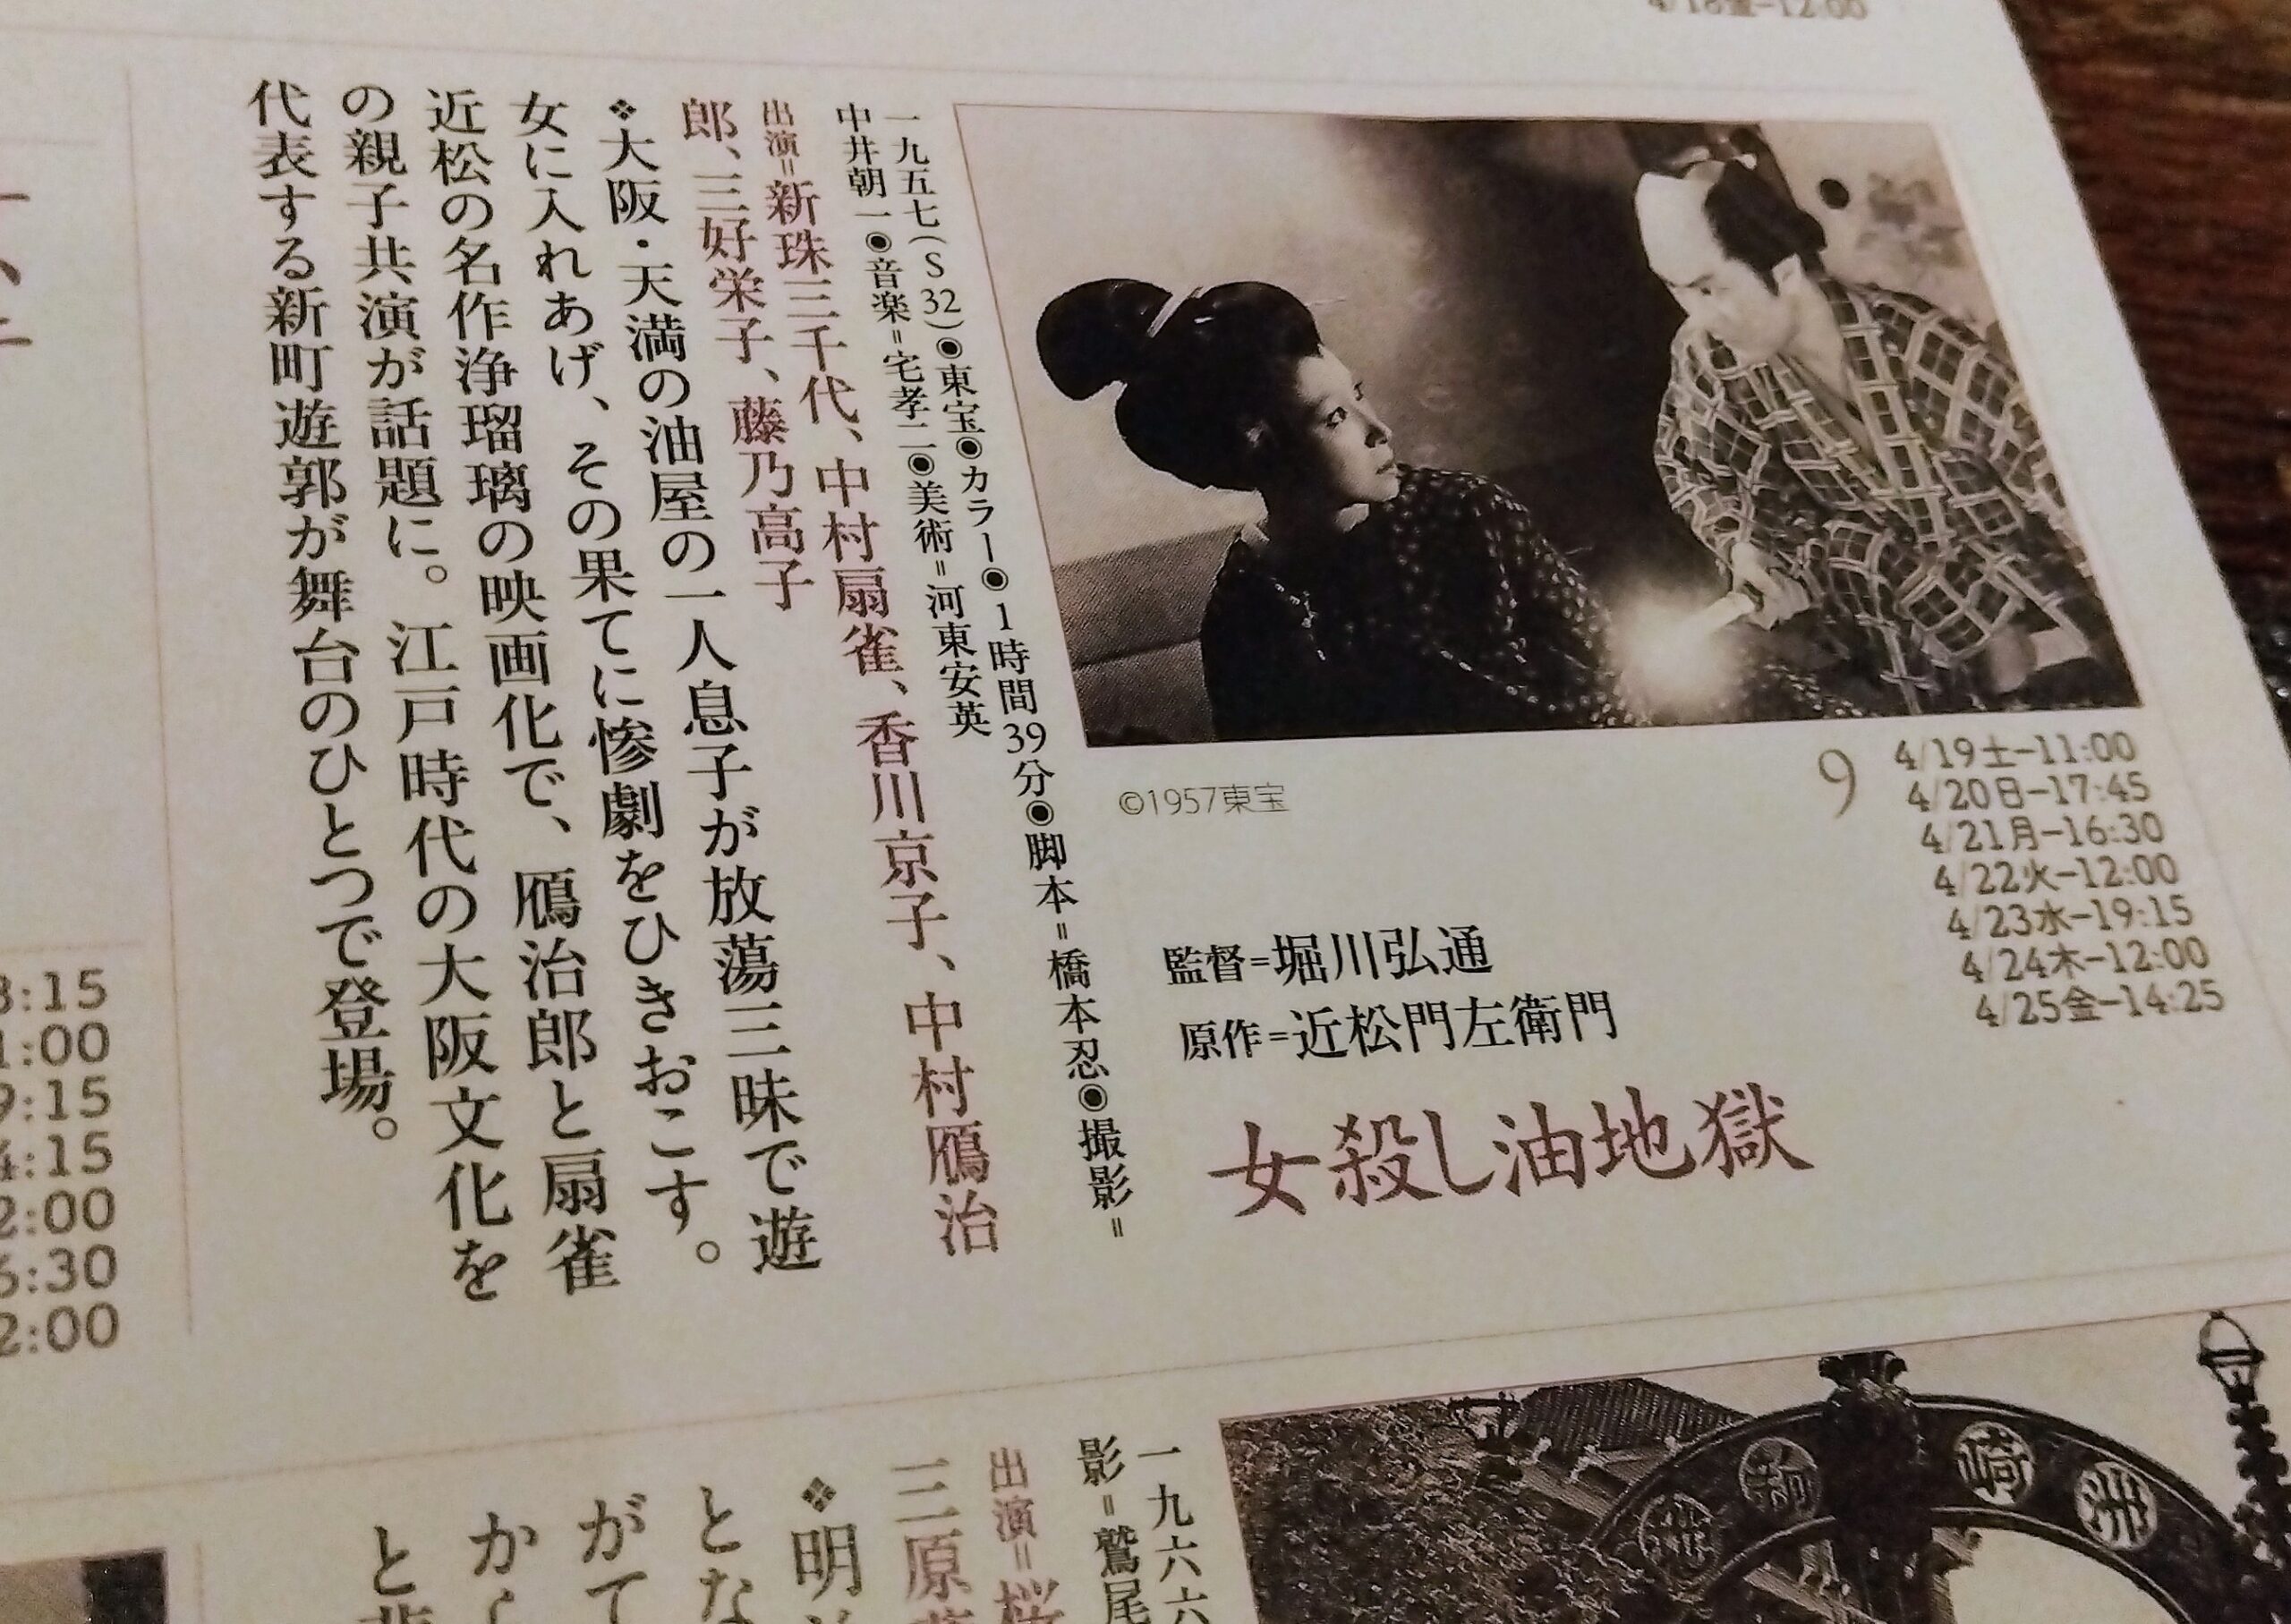 4/18金−12:00
©1957東宝
9
4/19土−11:00
4/20日−17:45
4/21月−16:30
4/22火−12:00
4/23水−19:15
4/24木−12:00
4/25金−14:25
監督=堀川弘通
原作=近松門左衛門
女殺し油地獄
一九五七(S32)◉東宝◉カラー◉1時間39分◉脚本=橋本忍◉撮影=
中井朝一◉音楽=宅孝二◉美術=河東安英
出演=新珠三千代、中村扇雀、香川京子、中村鴈治
郎、三好栄子、藤乃高子
❖大阪・天満の油屋の一人息子が放蕩三昧で遊
女に入れあげ、その果てに惨劇をひきおこす。
近松の名作浄瑠璃の映画化で、鴈治郎と扇雀
の親子共演が話題に。江戸時代の大阪文化を
代表する新町遊郭が舞台のひとつで登場。
:15
:00
9:15
4:15
2:00
6:30
2:00
洲
崎
一九六六
影=鷲尾
出演=桜
三原
❖明
とな
がて
か
と